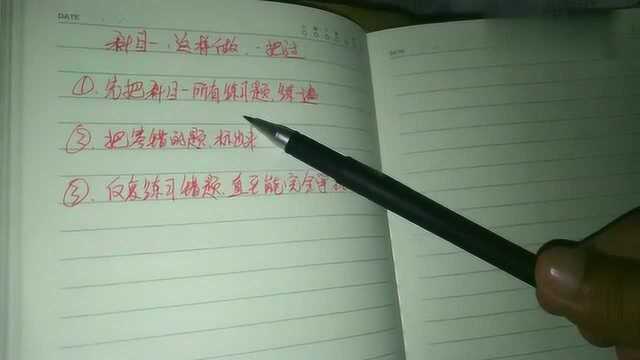 DATE
DATE
科目一,这样做,一把过
①、先把科目一所有练习题,练一遍
②、把答错的题,标出来
③、反复练习错题,直至能完全